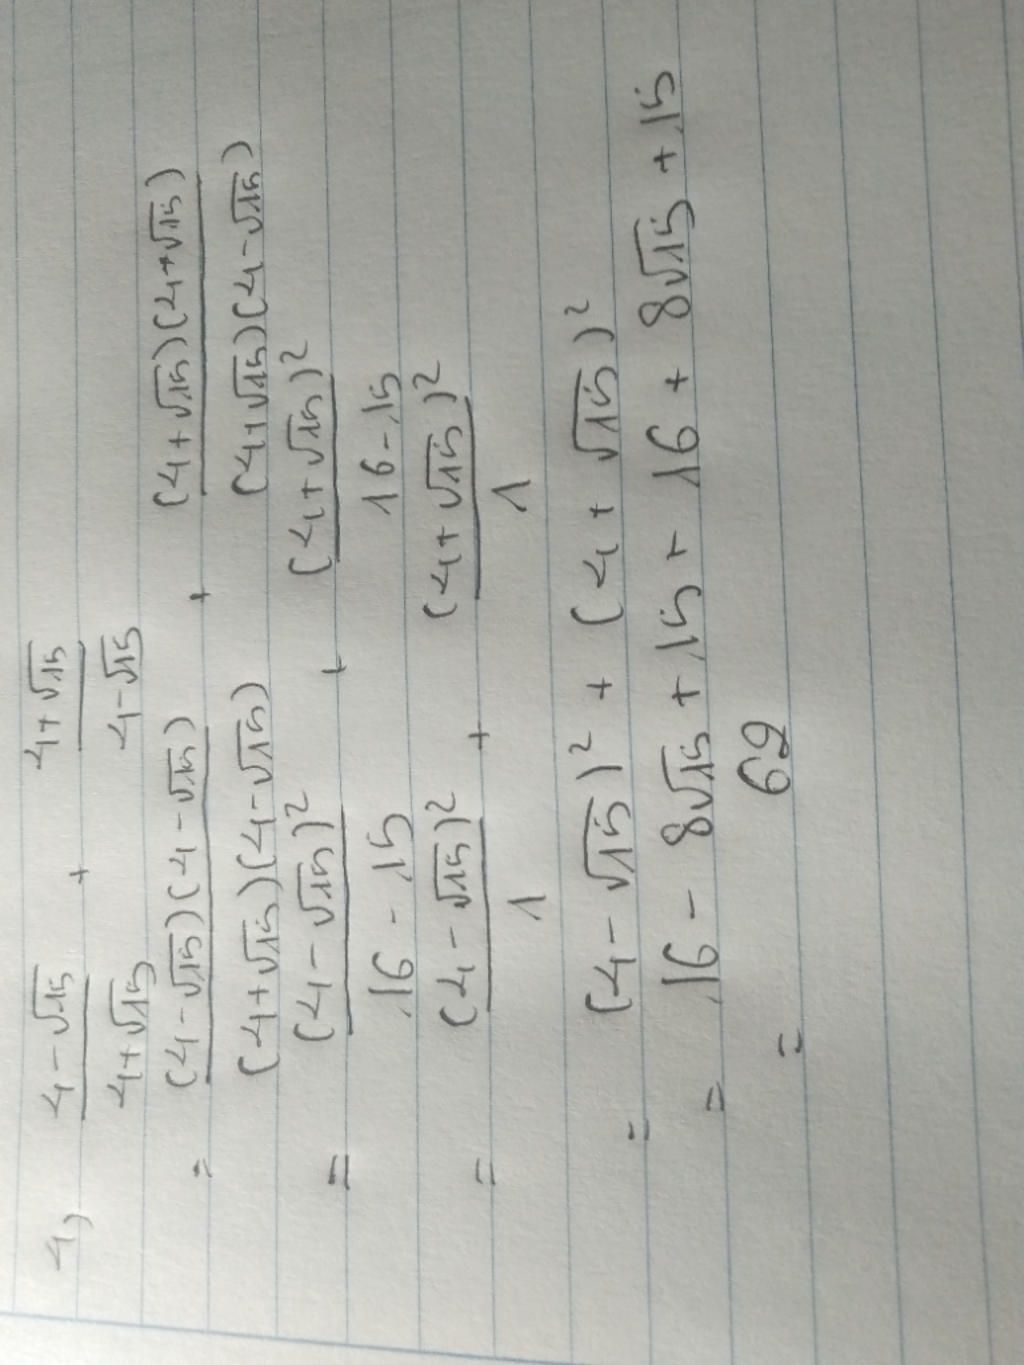 4, \frac{4-\sqrt{15}}{4+\sqrt{15}} + \frac{4+\sqrt{15}}{4-\sqrt{15}}
= \frac{(4-\sqrt{15})(4-\sqrt{15})}{(4+\sqrt{15})(4-\sqrt{15})} + \frac{(4+\sqrt{15})(4+\sqrt{15})}{(4+\sqrt{15})(4-\sqrt{15})}
= \frac{(4-\sqrt{15})^2}{16-15} + \frac{(4+\sqrt{15})^2}{16-15}
= \frac{(4-\sqrt{15})^2}{1} + \frac{(4+\sqrt{15})^2}{1}
= (4-\sqrt{15})^2 + (4+\sqrt{15})^2
= 16 - 8\sqrt{15} + 15 + 16 + 8\sqrt{15} + 15
= 62